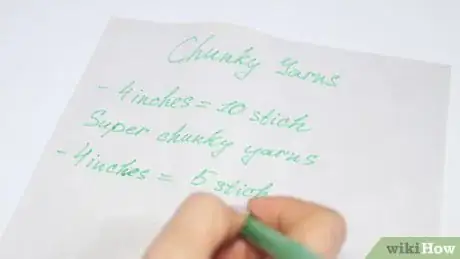 Chunky Yarns
- 4 inches = 10 stich
Super chunky yarns
- 4 inches = 5 stich
wikiHow